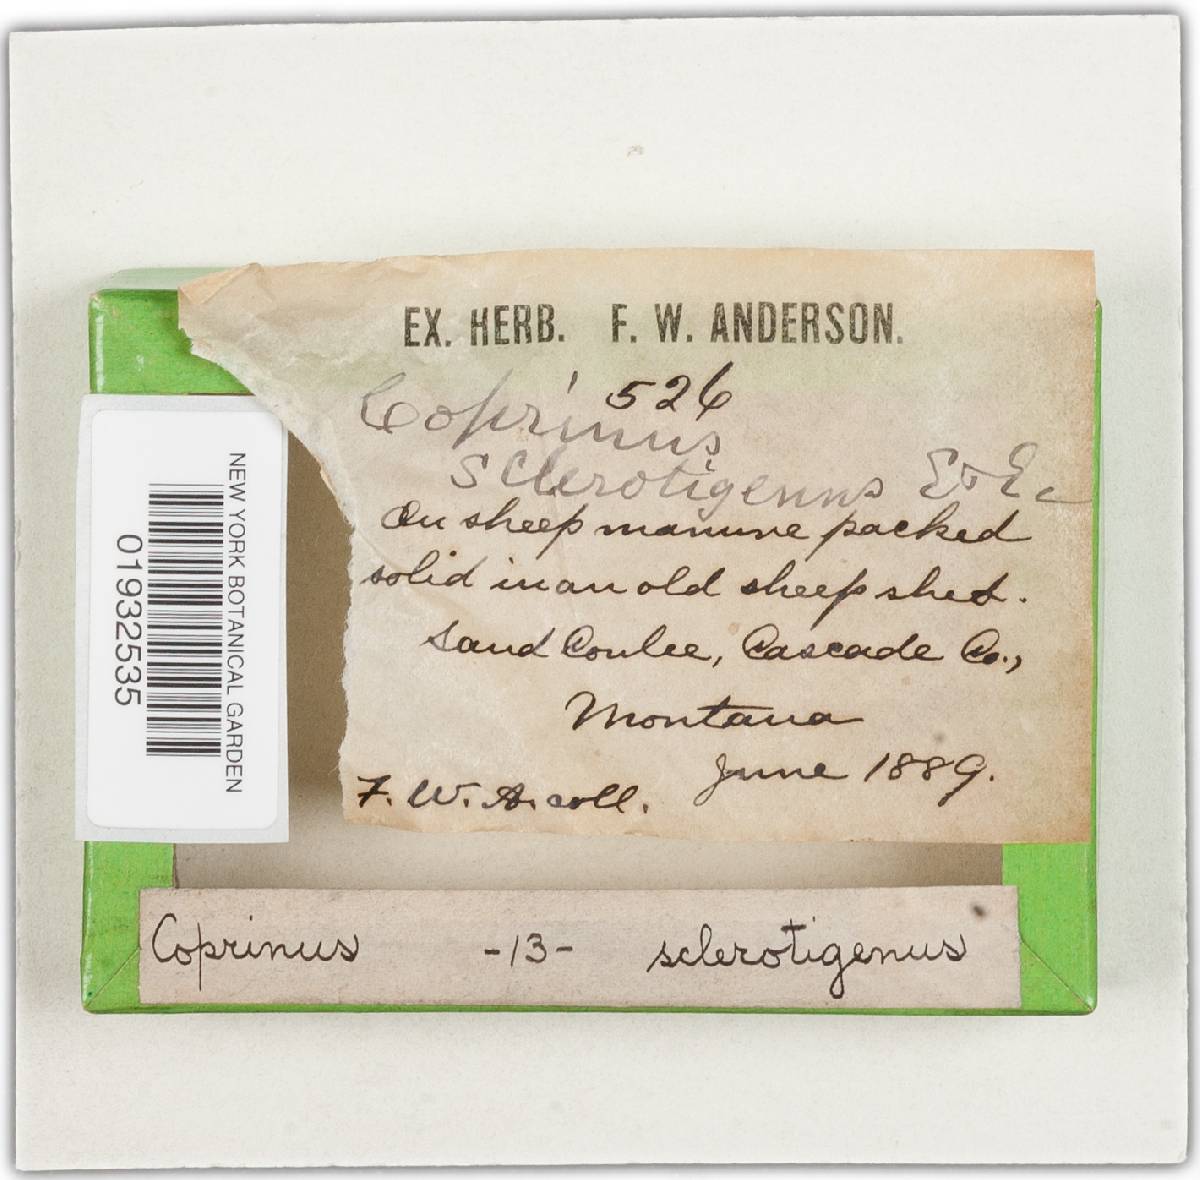 EX. HERB. F. W. ANDERSON.
526
Coprinus
sclerotigenus E & E.
On sheep manure packed
solid in an old sheep shed.
Sand Coulee, Cascade Co.,
Montana
June 1889.
F. W. A. coll.
NEW YORK BOTANICAL GARDEN
01932535
Coprinus -13- sclerotigenus